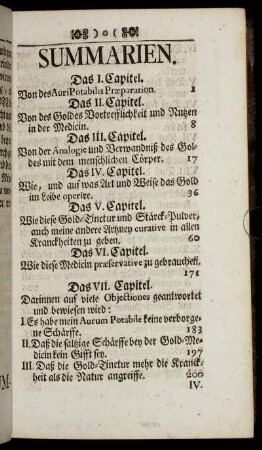 )o(
SUMMARIEN.
Das I. Capitel.
Von des Auri Potabilis Præparation. 1
Das II. Capitel.
Von des Goldes Vortrefflichkeit und Nutzen
in der Medicin. 8
Das III. Capitel.
Von der Analogie und Verwandniß des Gol-
des mit dem menschlichen Cörper. 17
Das IV. Capitel.
Wie, und auf was Art und Weise das Gold
im Leibe operire. 36
Das V. Capitel.
Wie diese Gold-Tinctur und Stärck-Pulver,
auch meine andere Artzney curative in allen
Kranckheiten zu geben. 60
Das VI. Capitel.
Wie diese Medicin præservative zu gebrauchen.
171
Das VII. Capitel.
Darinnen auf viele Objectiones geantwortet
und bewiesen wird:
I. Es habe mein Aurum Potabile keine verborge-
ne Schärffe. 183
II. Daß die saltzige Schärffe bey der Gold-Me-
dicin kein Gifft sey. 197
III. Daß die Gold-Tinctur mehr die Kranck-
heit als die Natur angreiffe. 200
IV.